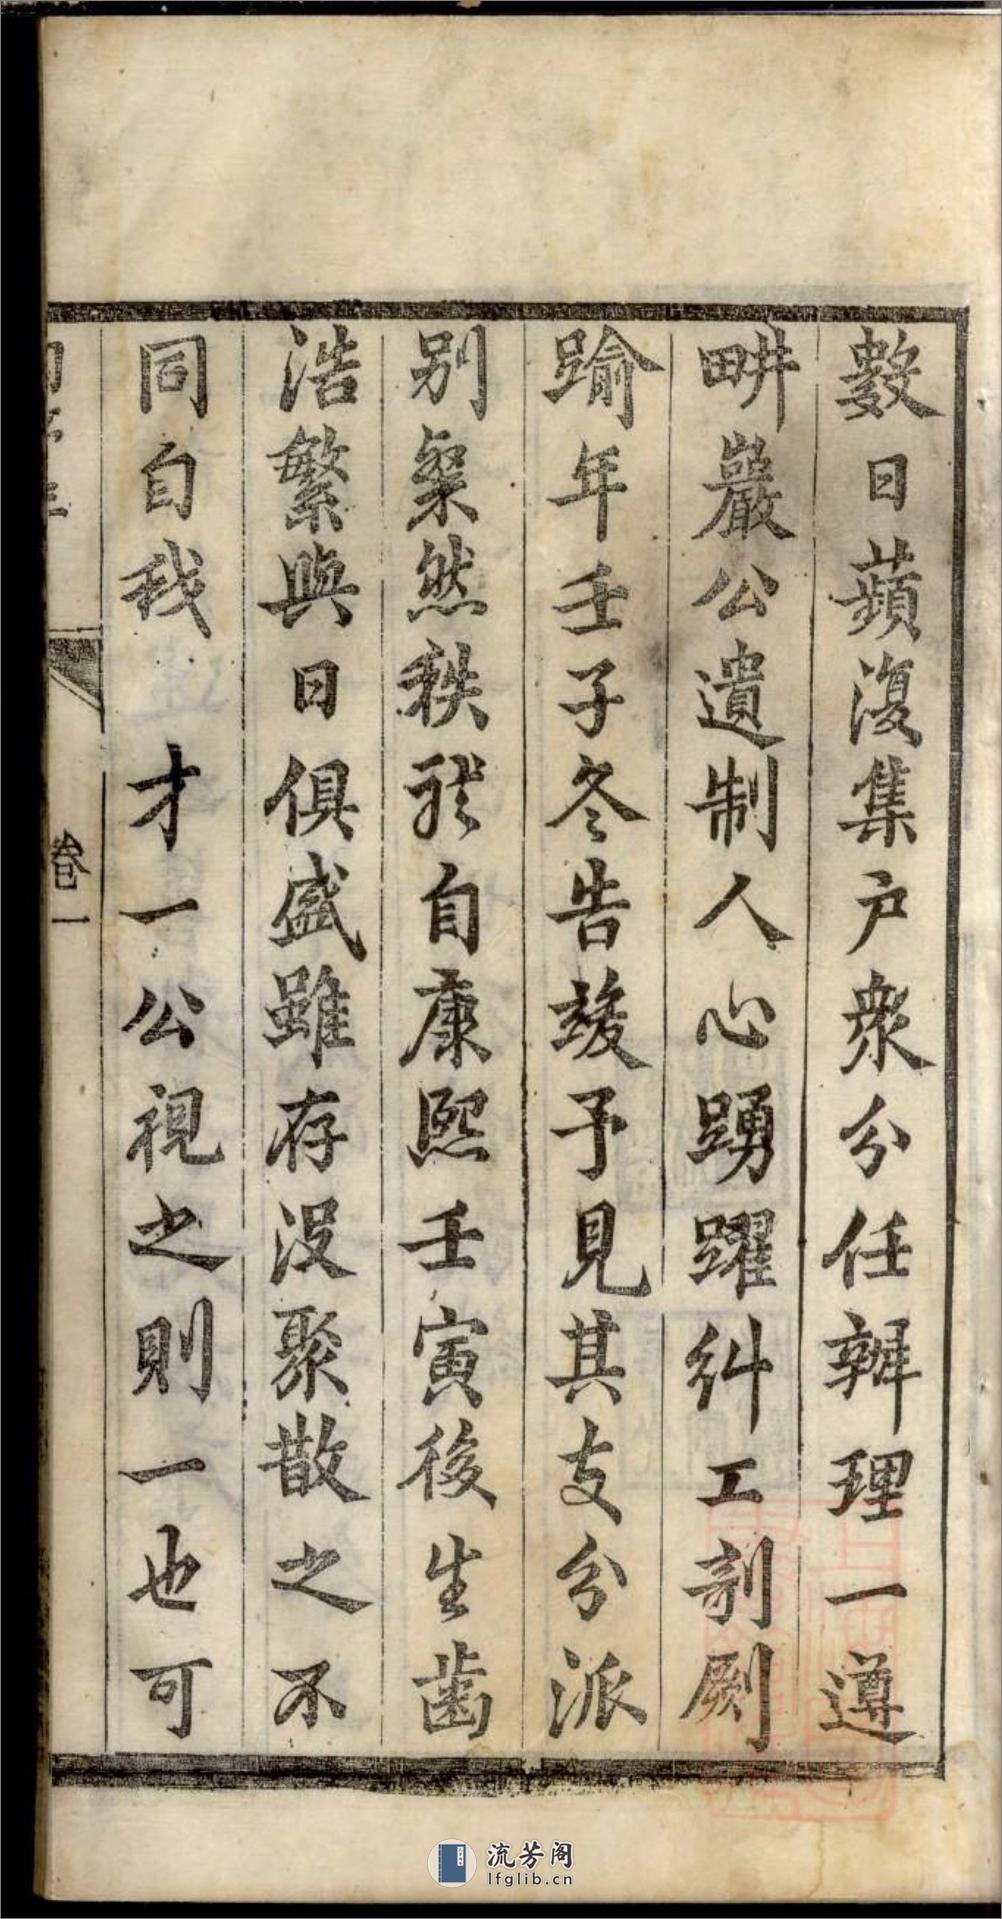 數日蘋復集户衆分任辦理一遵
畊巖公遺制人心踴躍糾工剞劂
踰年壬子冬告竣予見其支分派
别粲然秩於自康熙壬寅後生齒
浩繁與日俱盛雖存没聚散之不
同自我才一公視之則一也可
卷一
流芳阁
lfglib.cn